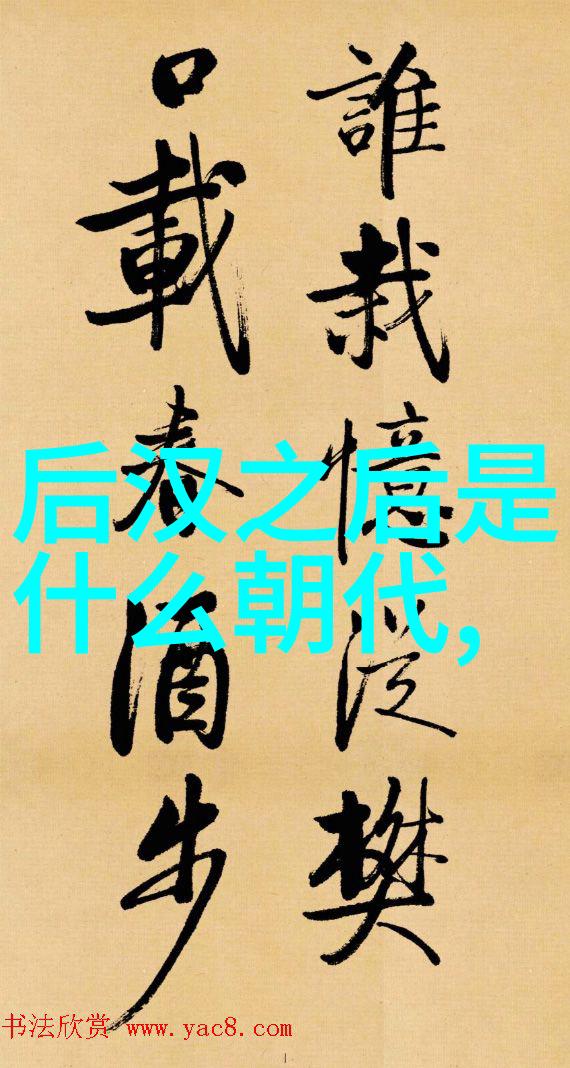 誰栽憶泛樊
口載春酒步
后汉之后是
什么朝代,
书法欣赏 www.yac8.com